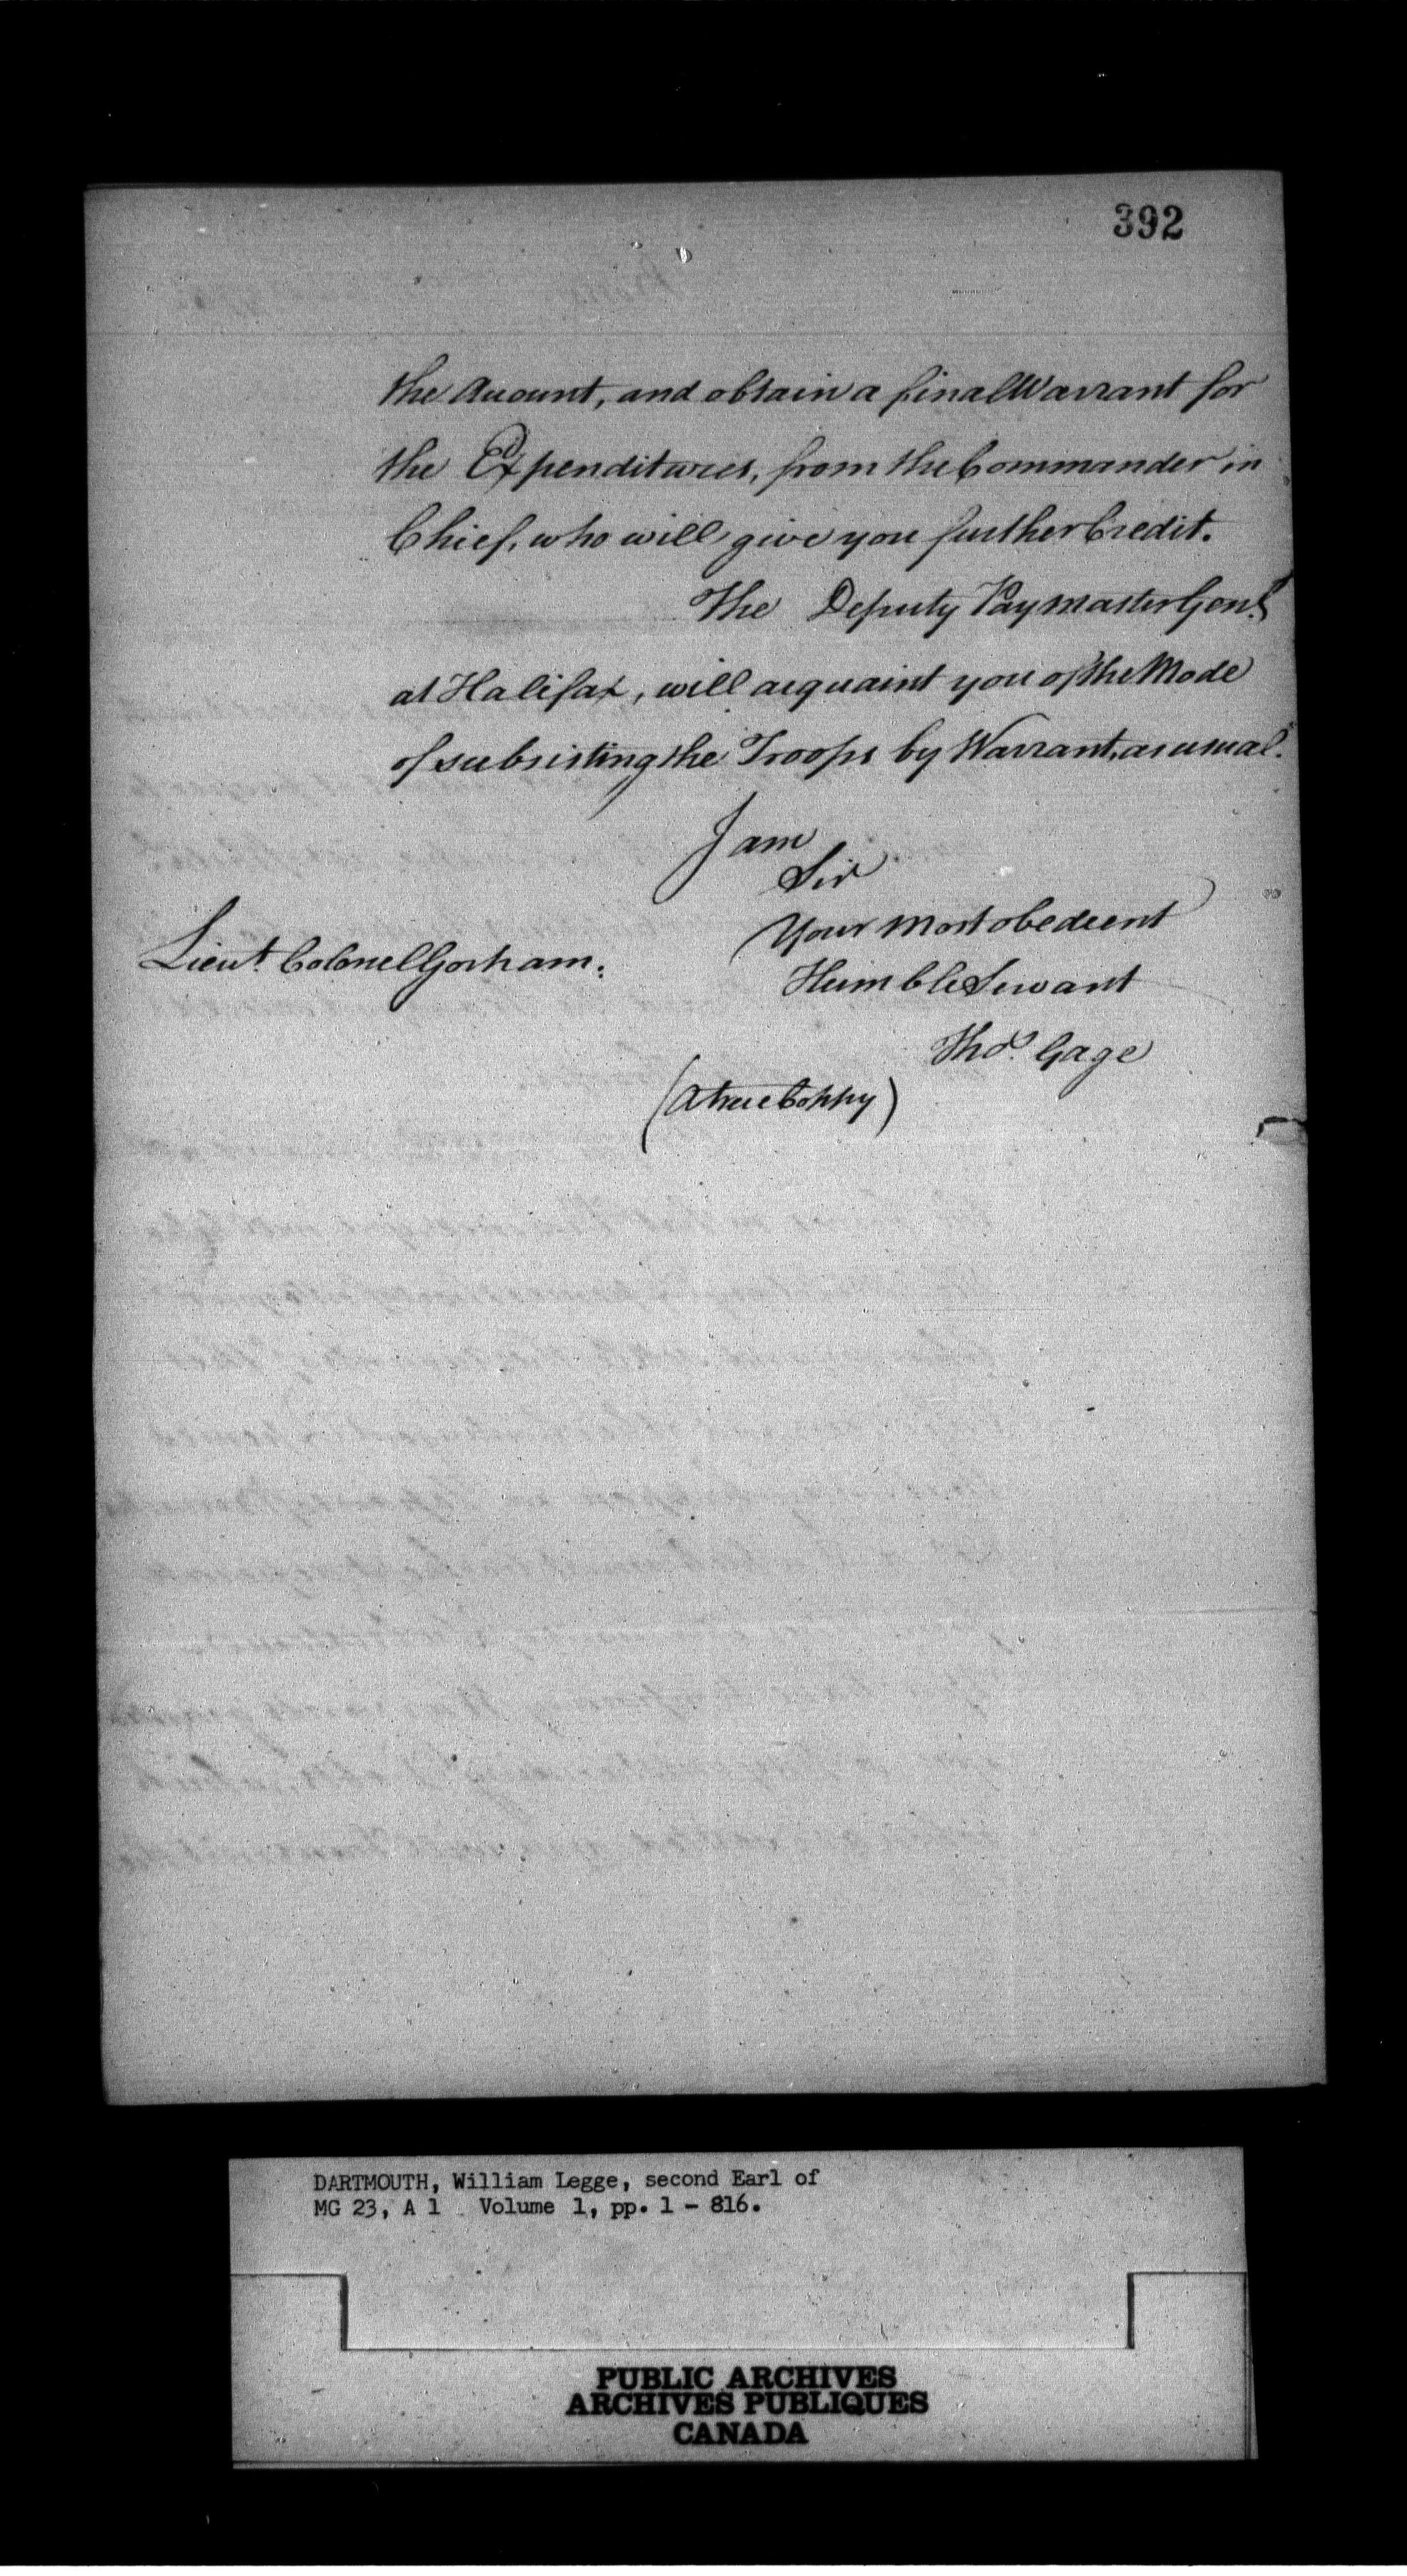 392
the Account, and obtain a final Warrant for
the Expenditures, from the Commander in
Chief, who will give you further Credit.
The Deputy Paymaster Genl.
at Halifax, will acquaint you of the Mode
of subsisting the Troops by Warrant, as usual.
I am
Sir
Your most obedient
Lieut. Colonel Gorham.
Humble Servant
Thos. Gage
(A true Coppy)
DARTMOUTH, William Legge, second Earl of
MG 23, A 1 Volume 1, pp. 1 - 816.
PUBLIC ARCHIVES
ARCHIVES PUBLIQUES
CANADA